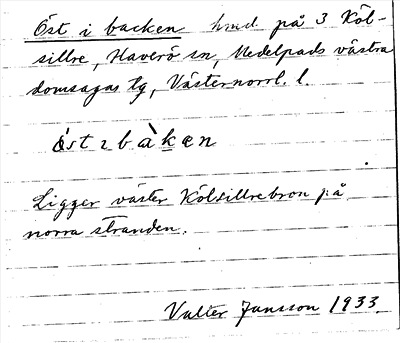 Öst i backen hmd på 3 Köl-
sillre, Haverö sn, Medelpads västra
domsagas tg, Västernorrl. l.
öst ı bàken
Ligger väster Kölsillrebron på
norra stranden.
Valter Jansson 1933.